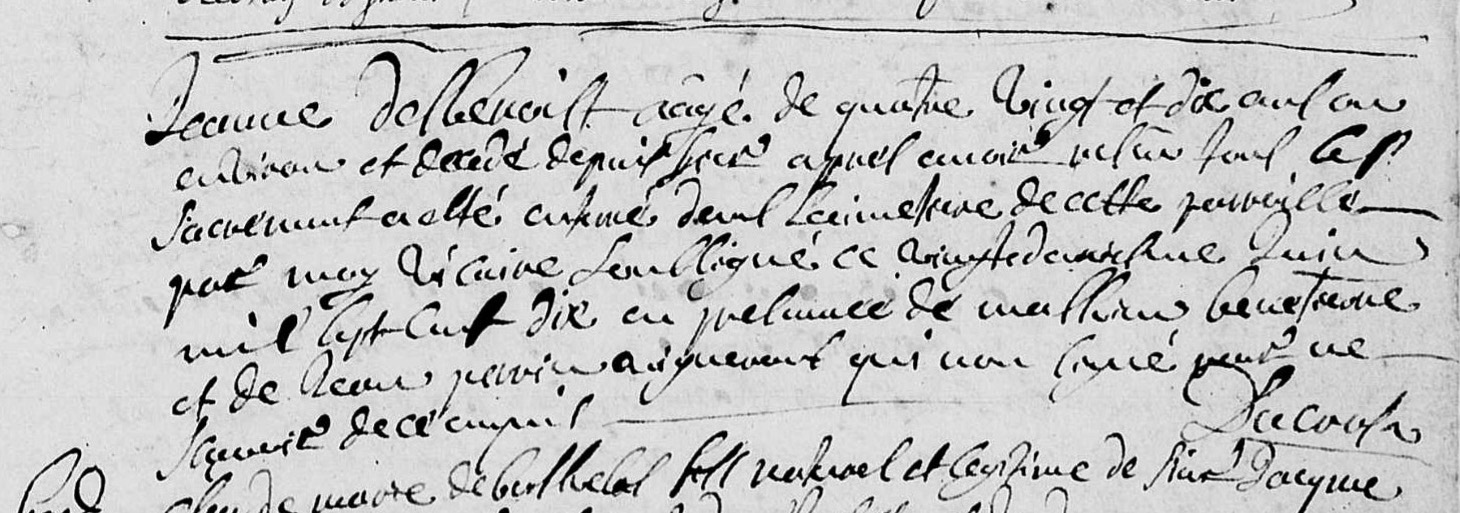 Jeanne DesBenoist aagé de quatre vingt et dix ans ou
environ et decedé depuis hier apres avoir recu tous les sts
sacremens a esté enterré dans le cimetiere de cette parroisse
par moy vicaire soussigné ce vingt deuxiesme Juin
mil sept cent dix en presence de mathieu
et de Jean perrin vigneront qui non signé pour ne
scavoir de ce enquis
Claude marie deberthelot fils naturel et legitime de sieur Jacque